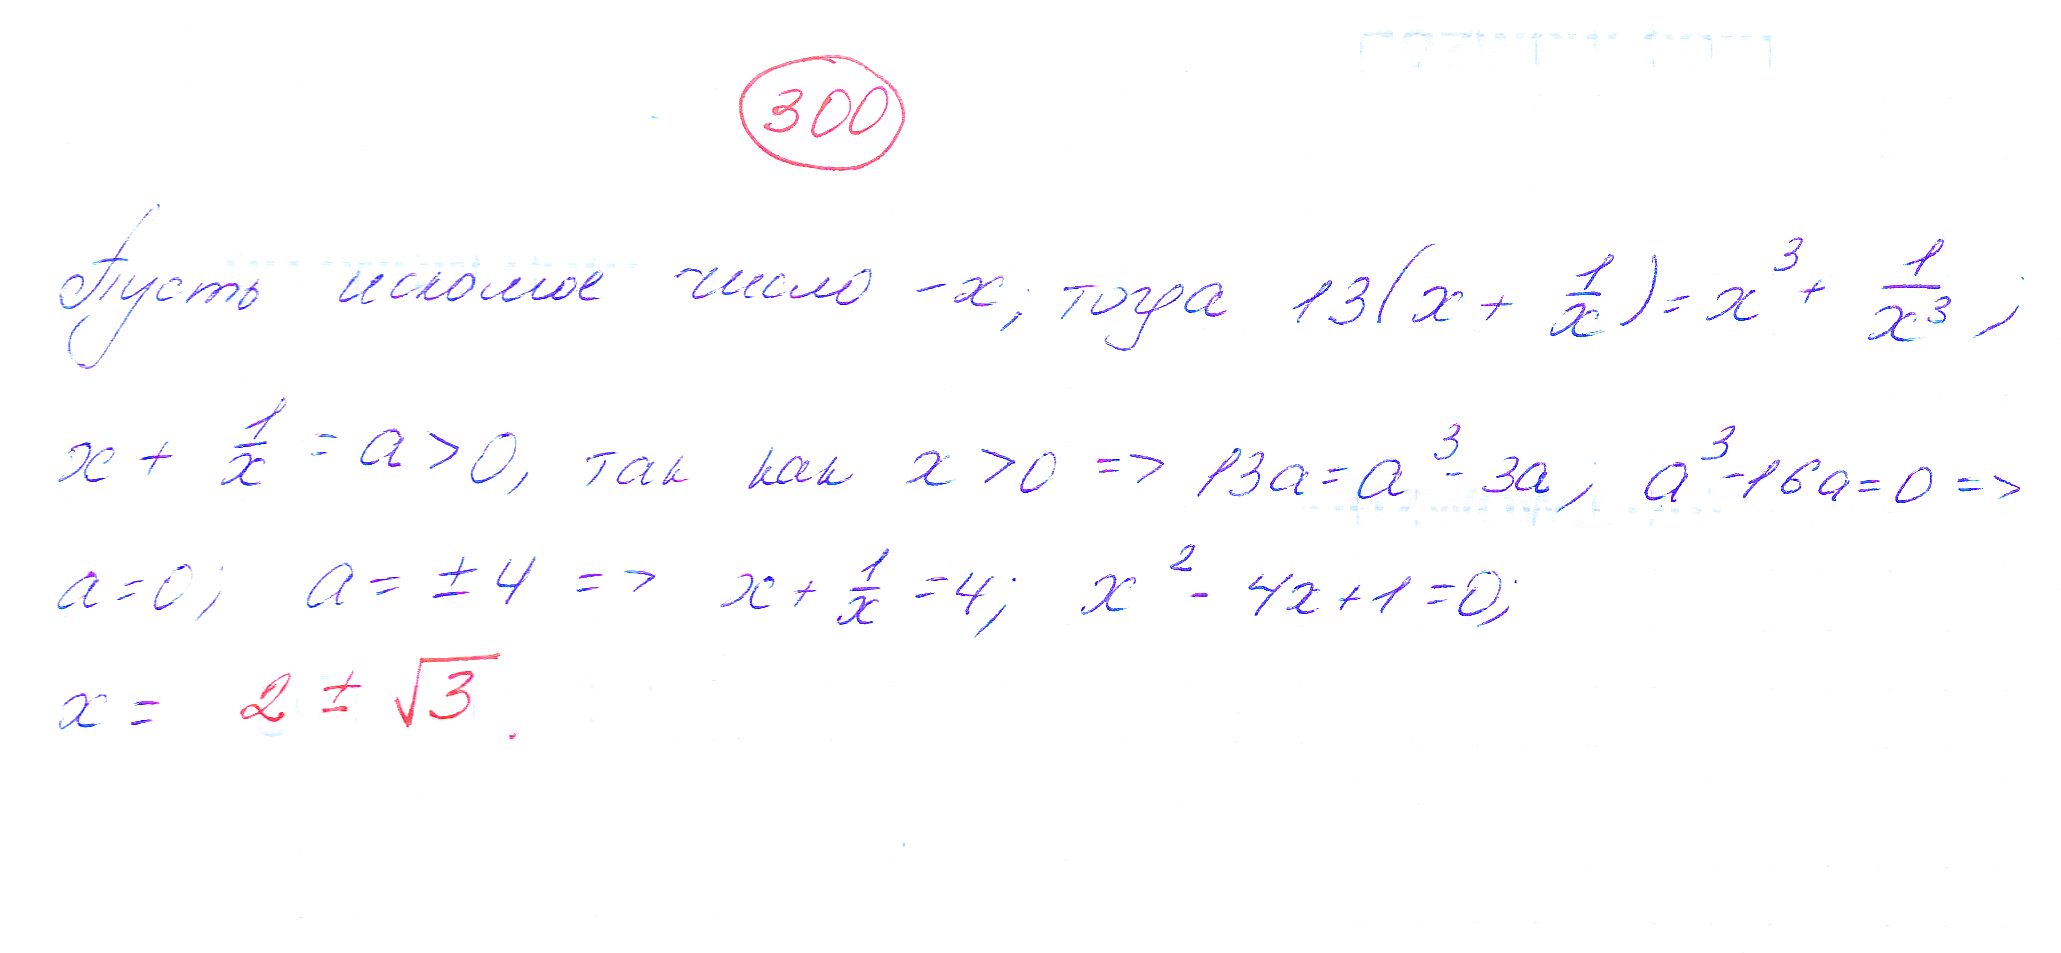 300
Пусть искомое число - x, тогда 13(x + 1/x) = x³ + 1/x³;
x + 1/x = a > 0, так как x > 0 => 13a = a³ - 3a; a³ - 16a = 0 =>
a = 0; a = ± 4 => x + 1/x = 4; x² - 4x + 1 = 0;
x = 2 ± √3.